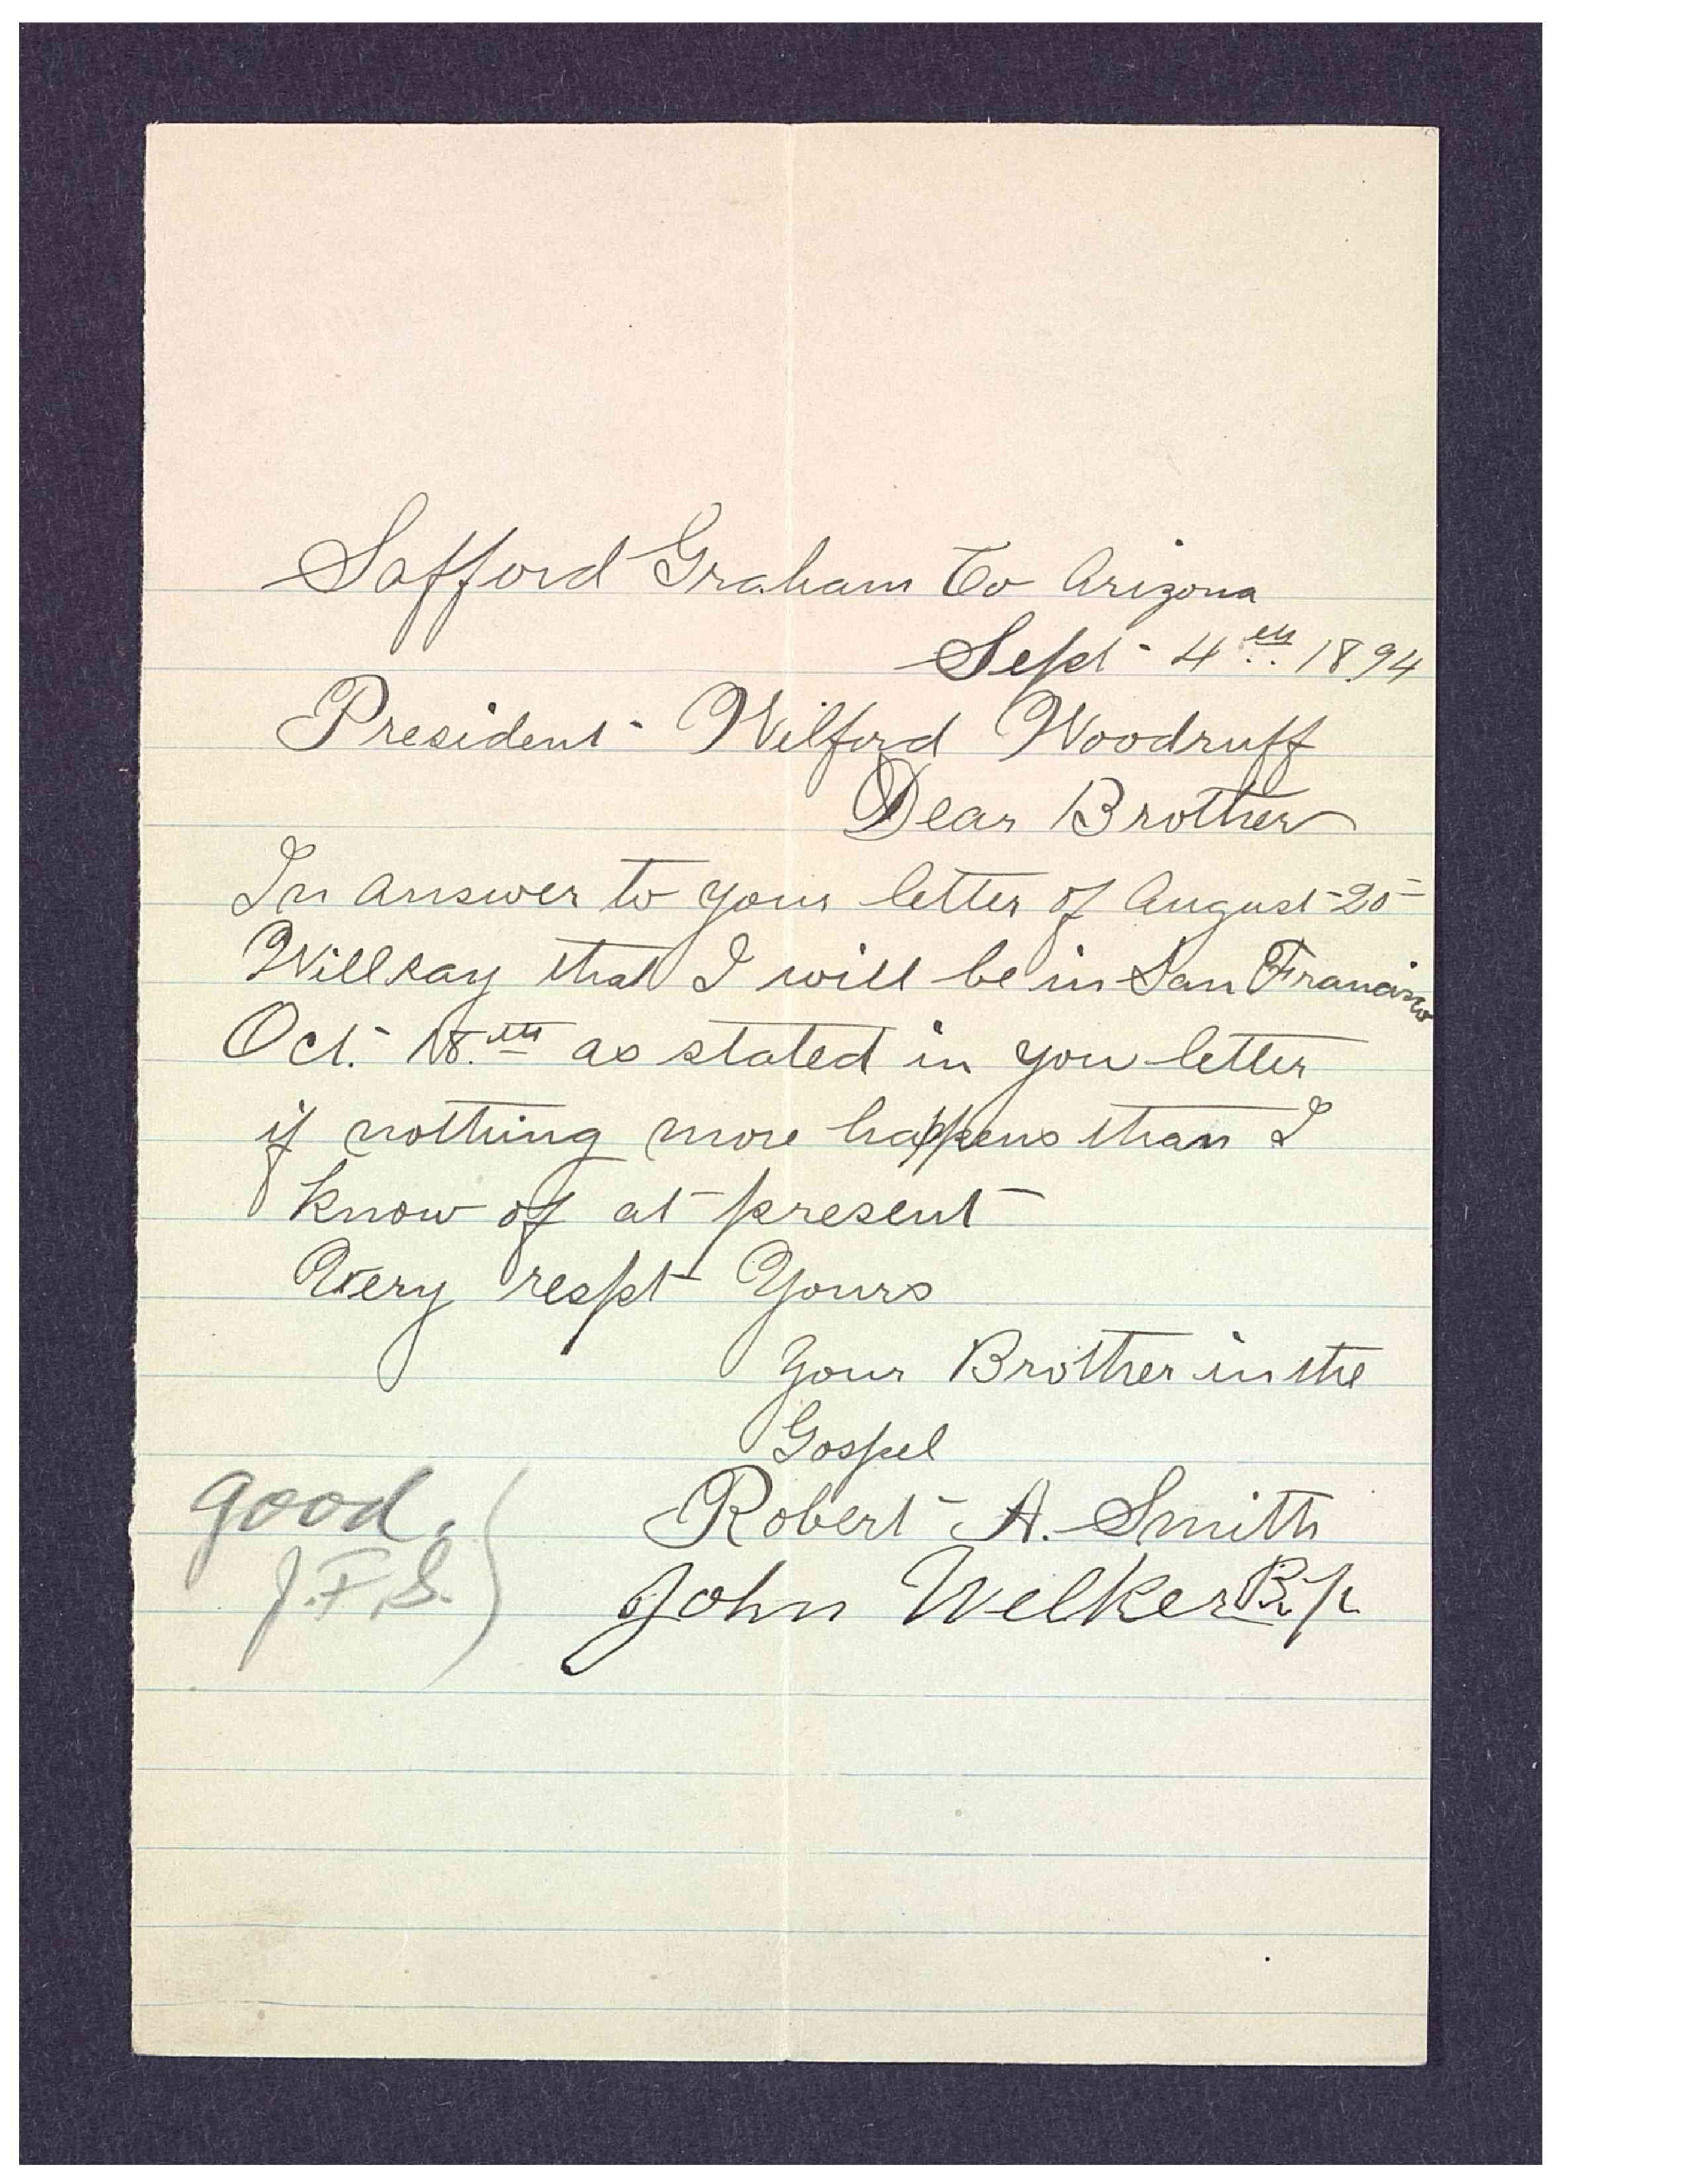 Safford Graham Co Arizona
Sept 4th 1894
President Wilford Woodruff
Dear Brother
In answer to your letter of August 25
Will say that I will be in San Francisco
Oct. 18th as stated in you letter
if nothing more happens than I
know of at present
Very respt Yours
Your Brother in the
Gospel
Robert A. Smith
John Welker Bp
good.
J.F.S.